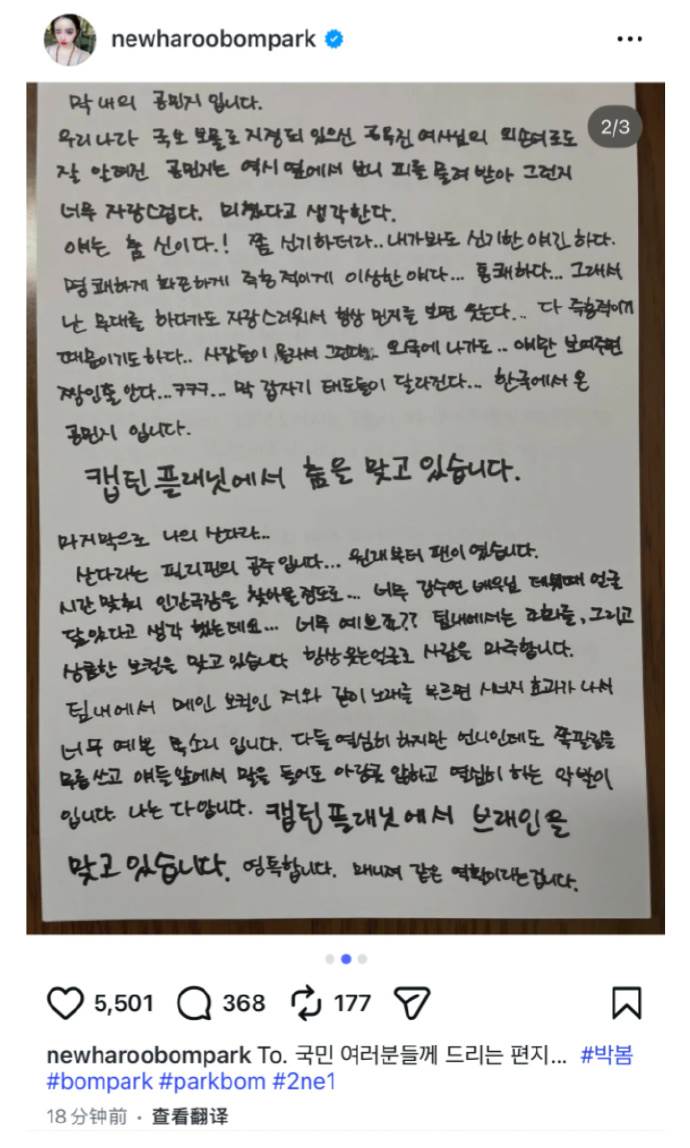 newharoobompark
2/3
막내의 공민지 입니다.
우리나라 국보 보물로 지정되 있으신 공옥진 여사님의 외손녀로도
잘 알려진 공민지는 역시 옆에서 보니 피를 물려 받아 그런지
너무 자랑스럽다. 미쳤다고 생각한다.
얘는 춤 신이다.! 쫌 신기하더라.. 내가봐도 신기한 얘긴 하다.
명쾌하게 화끈하게 즉흥적이게 이상한 얘다... 통쾌하다... 그래서
난 무대를 하다가도 자랑스러워서 항상 민지를 보면 웃는다... 다 즉흥적이기
때문이기도 하다.. 사람들이 몰라서 그런데.. 외국에 나가도.. 얘만 보여주면
짱인줄 안다...ㅋㅋㅋ... 막 갑자기 태도들이 달라진다... 한국에서 온
공민지 입니다.
캡틴플래닛에서 춤을 맞고 있습니다.
마지막으로 나의 산다라..
산다라는 필리핀의 공주입니다... 원래부터 팬이였습니다.
시간 맞춰 인간극장을 찾아볼정도로... 너무 강수연 배우님 데뷔때 얼굴
닮았다고 생각 했는데요... 너무 예쁘죠?? 팀내에서는 조화를, 그리고
상큼한 보컬을 맞고 있습니다 항상 웃는얼굴로 사람을 마주합니다.
팀 내에서 메인 보컬인 저와 같이 노래를 부르면 시너지 효과가 나서
너무 예쁜 목소리 입니다. 다들 열심히 하지만 언니인데도 쪽팔림을
무릅쓰고 얘들앞에서 말을 들어도 아랑곳 않하고 열심히 하는 악발이
입니다 나는 다압니다. 캡틴플래닛에서 브래인을
맞고 있습니다. 영특합니다. 매니져 같은 역할이라는겁니다.
5,501 368 177
newharoobompark To. 국민 여러분들께 드리는 편지... #박봄
#bompark #parkbom #2ne1
18分钟前 · 查看翻译